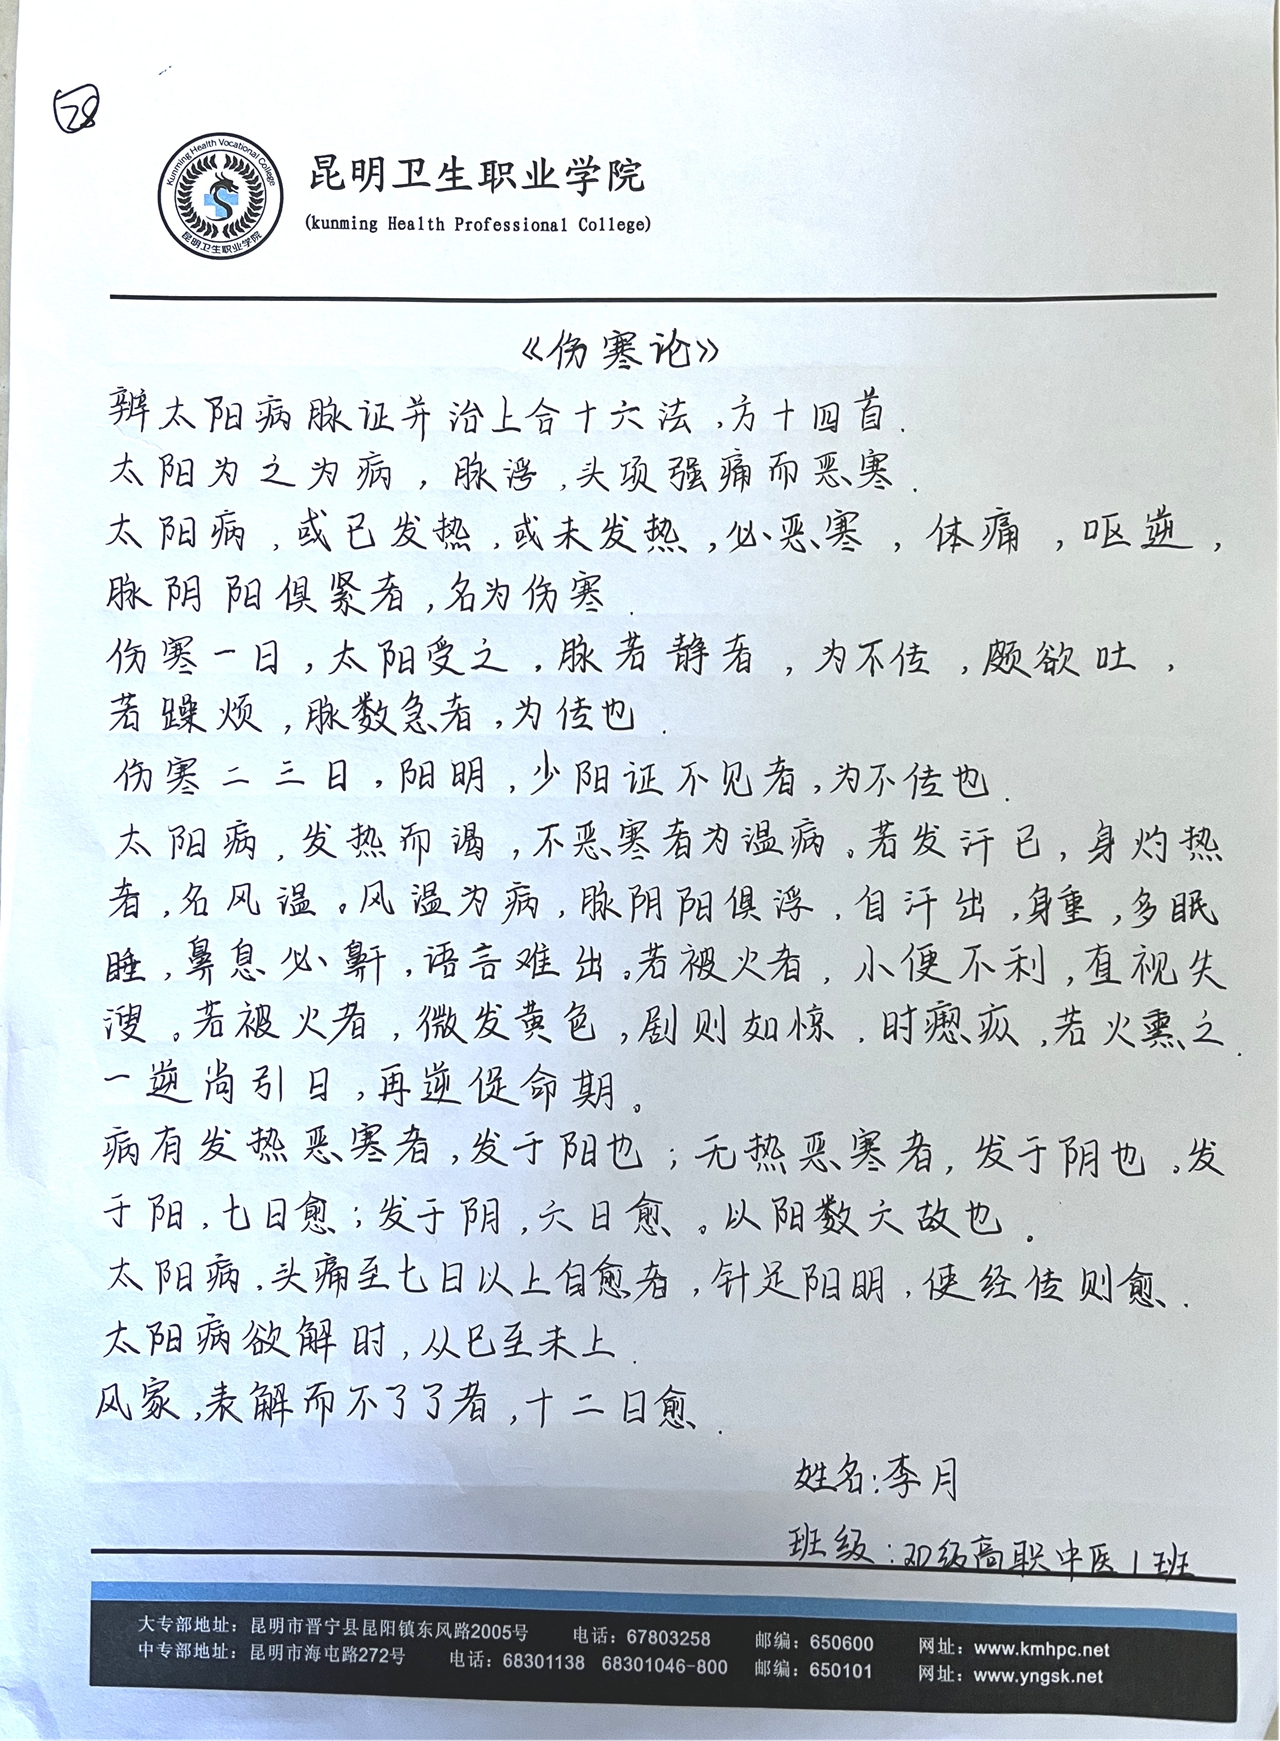 28
Kunming Health Vocational College
昆明卫生职业学院
昆明卫生职业学院
(kunming Health Professional College)
《伤寒论》
辨太阳病脉证并治上合十六法,方十四首.
太阳为之为病,脉浮,头项强痛而恶寒.
太阳病,或已发热,或未发热,必恶寒,体痛,呕逆,
脉阴阳俱紧者,名为伤寒.
伤寒一日,太阳受之,脉若静者,为不传,颇欲吐,
若躁烦,脉数急者,为传也.
伤寒二三日,阳明,少阳证不见者,为不传也.
太阳病,发热而渴,不恶寒者为温病。若发汗已,身灼热
者,名风温。风温为病,脉阴阳俱浮,自汗出,身重,多眠
睡,鼻息必鼾,语言难出。若被火者,小便不利,直视失
溲。若被火者,微发黄色,剧则如惊,时瘛疭,若火熏之.
一逆尚引日,再逆促命期。
病有发热恶寒者,发于阳也;无热恶寒者,发于阴也。发
于阳,七日愈;发于阴,六日愈。以阳数六故也。
太阳病,头痛至七日以上自愈者,针足阳明,使经传则愈.
太阳病欲解时,从巳至未上.
风家,表解而不了了者,十二日愈.
姓名:李月
班级:20级高职中医1班
大专部地址：昆明市晋宁县昆阳镇东风路2005号 电话：67803258 邮编：650600 网址：www.kmhpc.net
中专部地址：昆明市海屯路272号 电话：68301138 68301046-800 邮编：650101 网址：www.yngsk.net